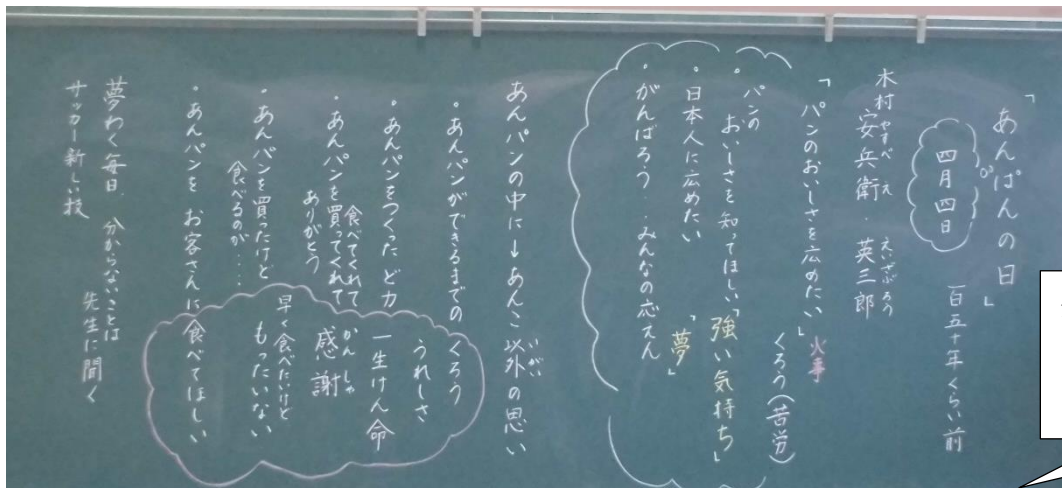 「あんぱんの日」
四月四日
一百五十年くらい前
木村安兵衛・英三郎
やすべえ
えいざぶろう
「パンのおいしさを広めたい」
火事
くろう(苦労)
・パンのおいしさを知ってほしい
「強い気持ち」
・日本人に広めたい
「夢」
・がんばろう・・みんなの応えん
あんパンの中に→あんこ以外の思い
いがい
・あんパンができるまでのくろう
うれしさ
・あんパンをつくったど力
一生けん命
・あんパンを買ってくれて
食べてくれて
ありがとう
感謝
かんしゃ
・あんパンを買ったけど
食べるのが‥‥
早く食べたいけど
もったいない
・あんパンを お客さんに食べてほしい
夢わく毎日 分からないことは
先生に聞く
サッカー新しい技